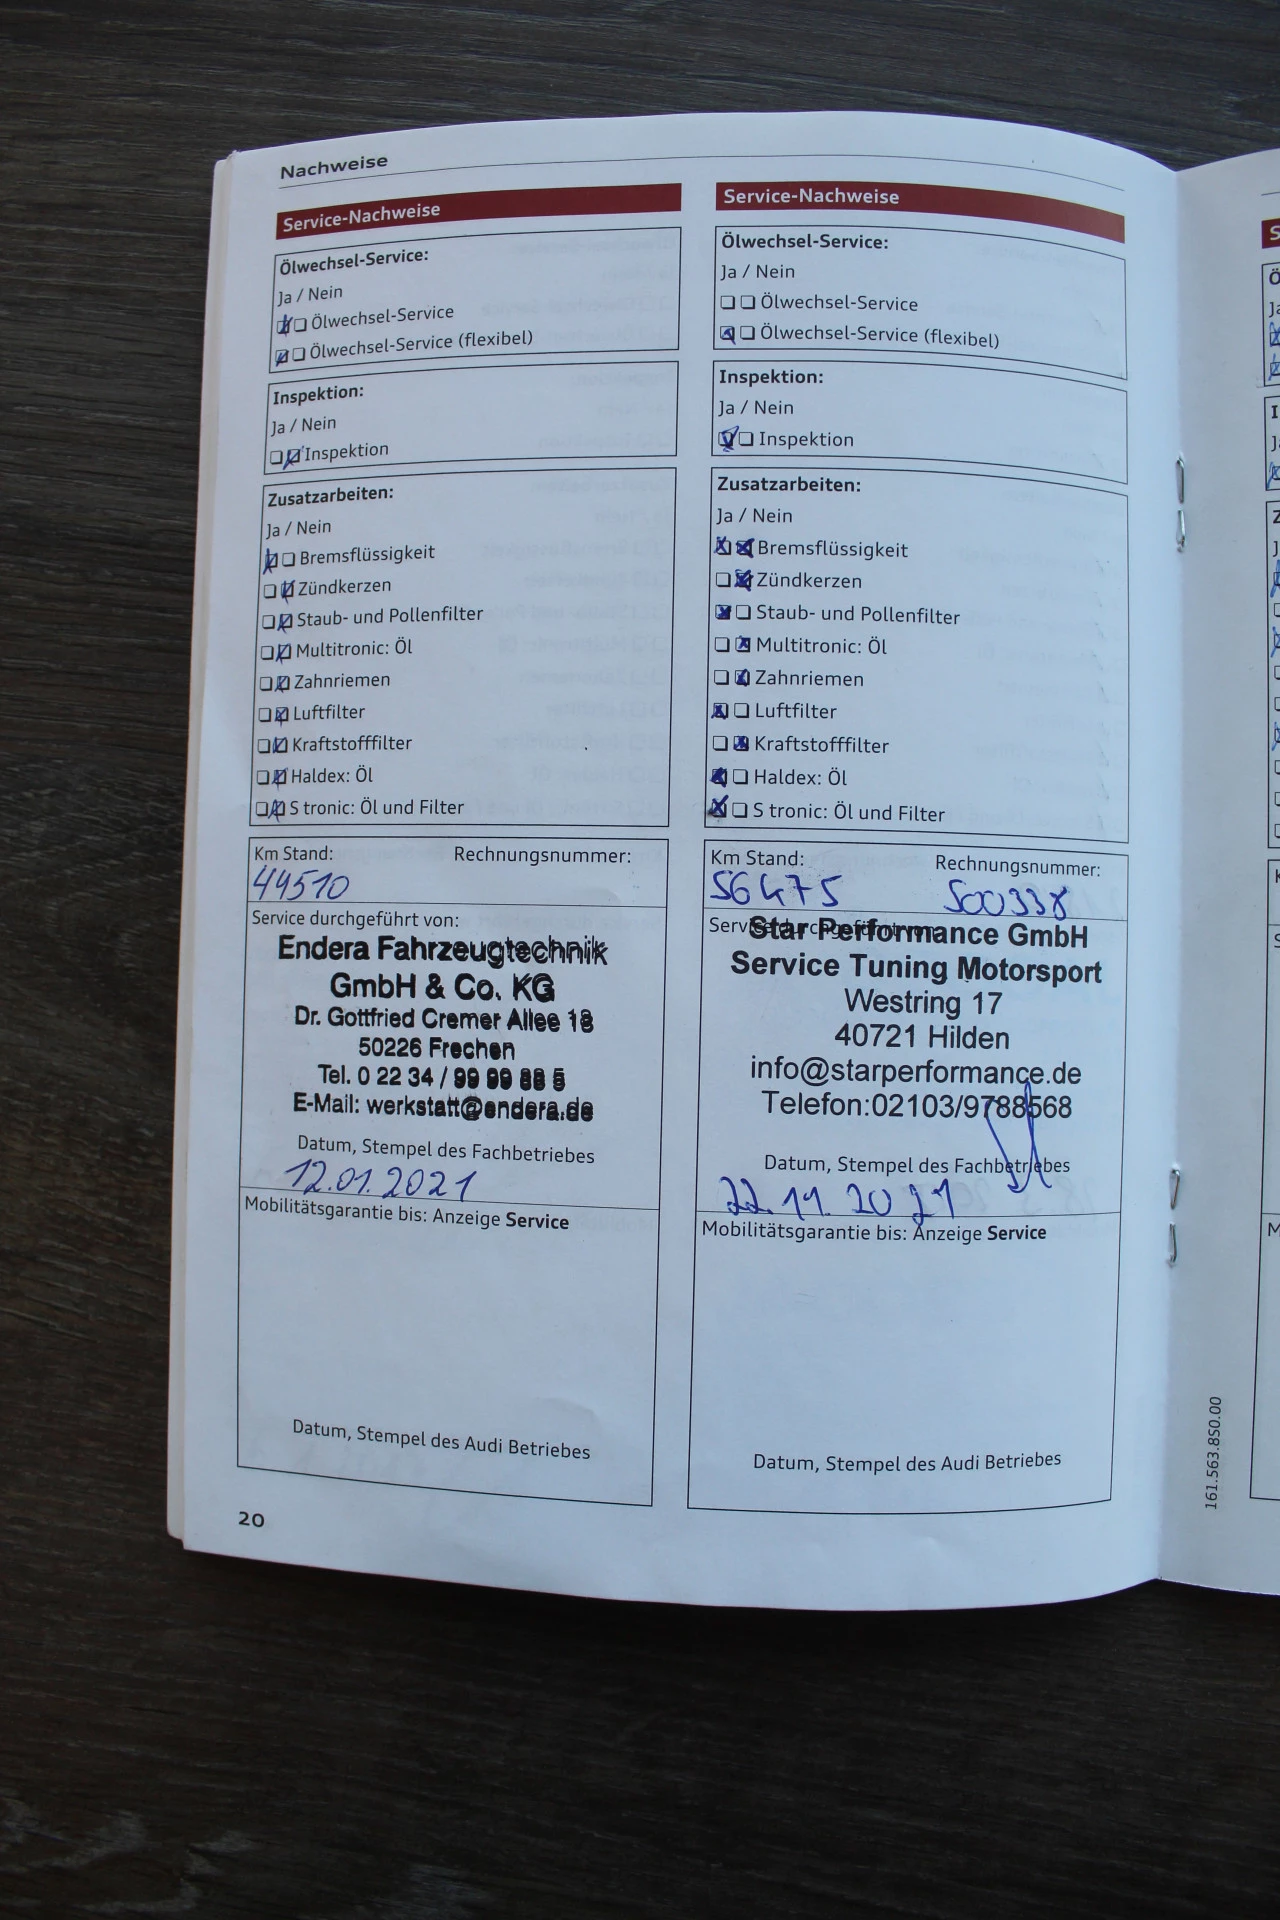 Nachweise
Service-Nachweise
Ölwechsel-Service:
Ja / Nein
Ölwechsel-Service
Ölwechsel-Service (flexibel)
Inspektion:
Ja / Nein
Inspektion
Zusatzarbeiten:
Ja / Nein
Bremsflüssigkeit
Zündkerzen
Staub- und Pollenfilter
Multitronic: Öl
Zahnriemen
Luftfilter
Kraftstofffilter
Haldex: Öl
S tronic: Öl und Filter
Km Stand: Rechnungsnummer:
44510
Service durchgeführt von:
Endera Fahrzeugtechnik
GmbH & Co. KG
Dr. Gottfried Cremer Allee 18
50226 Frechen
Tel. 0 22 34 / 99 99 88 5
E-Mail: werkstatt@endera.de
Datum, Stempel des Fachbetriebes
12.01.2021
Mobilitätsgarantie bis: Anzeige Service
Datum, Stempel des Audi Betriebes
20
Service-Nachweise
Ölwechsel-Service:
Ja / Nein
Ölwechsel-Service
Ölwechsel-Service (flexibel)
Inspektion:
Ja / Nein
Inspektion
Zusatzarbeiten:
Ja / Nein
Bremsflüssigkeit
Zündkerzen
Staub- und Pollenfilter
Multitronic: Öl
Zahnriemen
Luftfilter
Kraftstofffilter
Haldex: Öl
S tronic: Öl und Filter
Km Stand: Rechnungsnummer:
56475 500338
Service durchgeführt von:
Star Performance GmbH
Service Tuning Motorsport
Westring 17
40721 Hilden
info@starperformance.de
Telefon:02103/9788568
Datum, Stempel des Fachbetriebes
22.11.2021
Mobilitätsgarantie bis: Anzeige Service
Datum, Stempel des Audi Betriebes
161.563.8S0.00